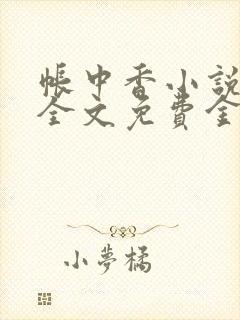 帳中香小說
全文免費全
小夢橘